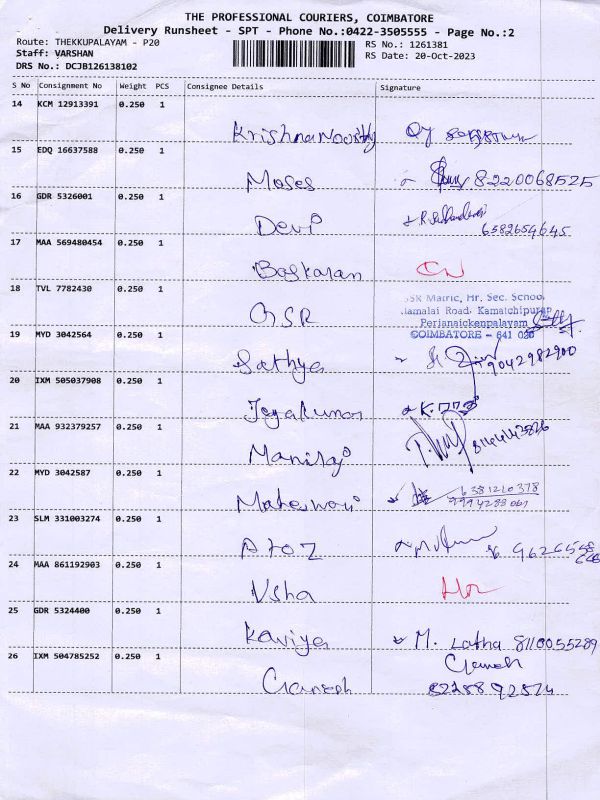 THE PROFESSIONAL COURIERS, COIMBATORE
Delivery Runsheet - SPT - Phone No.:0422-3505555 - Page No.:2
Route: THEKKUPALAYAM - P20
RS No.: 1261381
Staff: VARSHAN
RS Date: 20-Oct-2023
DRS No.: DCJB126138102
S No Consignment No Weight PCS Consignee Details Signature
14 KCM 12913391 0.250 1
Krishnamoorthy
15 EDQ 16637588 0.250 1
Moses 8220068525
16 GDR 5326001 0.250 1
Devi 6382654645
17 MAA 569480454 0.250 1
Baskaran CN
18 TVL 7782430 0.250 1
GSR
GSR Matric, Hr. Sec. School
Kamatchipuram
Perianaickenpalayam
COIMBATORE - 641 020
19 MYD 3042564 0.250 1
Sathya 9042982900
20 IXM 505037908 0.250 1
Jeyakumar
21 MAA 932379257 0.250 1
Maniraj
22 MYD 3042587 0.250 1
Maheswari 6381210378
23 SLM 331003274 0.250 1
A to Z
24 MAA 861192903 0.250 1
Usha
25 GDR 5324400 0.250 1
Kaviya M. Latha 8110055289
26 IXM 504785252 0.250 1
Ganesh
Ganesh